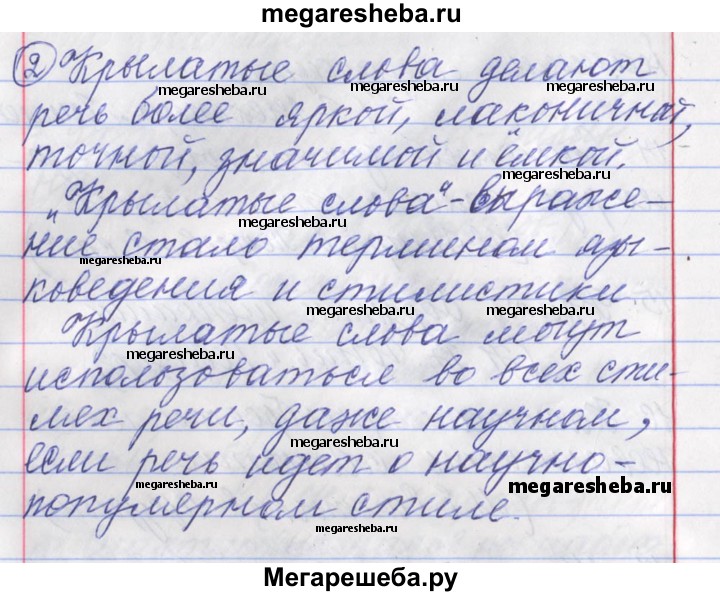 megaresheba.ru
② Крылатые слова делают
megaresheba.ru megaresheba.ru megaresheba.ru
речь более яркой, лаконичной,
точной, значимой и ёмкой.
megaresheba.ru
„Крылатые слова“ - выраже-
megaresheba.ru
ние стало термином язы-
megaresheba.ru
коведения и стилистики
megaresheba.ru megaresheba.ru
Крылатые слова могут
megaresheba.ru megaresheba.ru
использоваться во всех сти-
лях речи, даже научном,
megaresheba.ru
если речь идет о научно-
megaresheba.ru megaresheba.ru
популярном стиле.
megaresheba.ru
Мегарешеба.ру